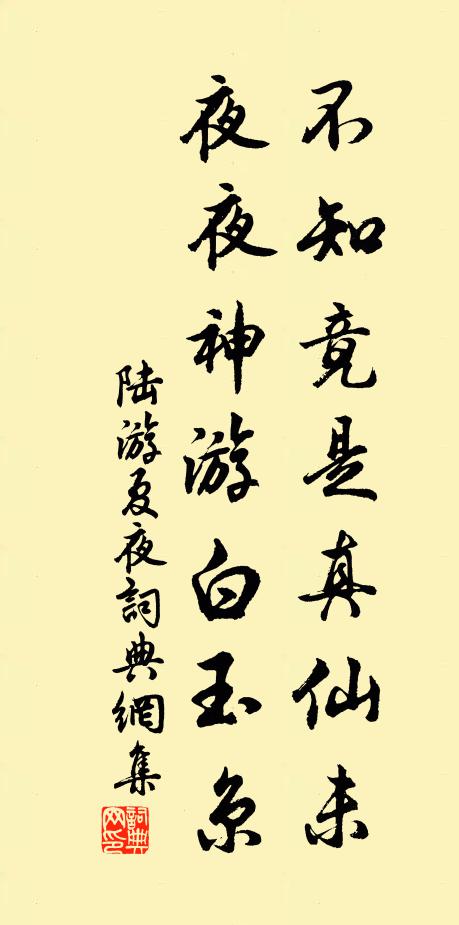 不知竟是真仙未
夜夜神游白玉京
陆游夏夜詞典網集
詞典网印